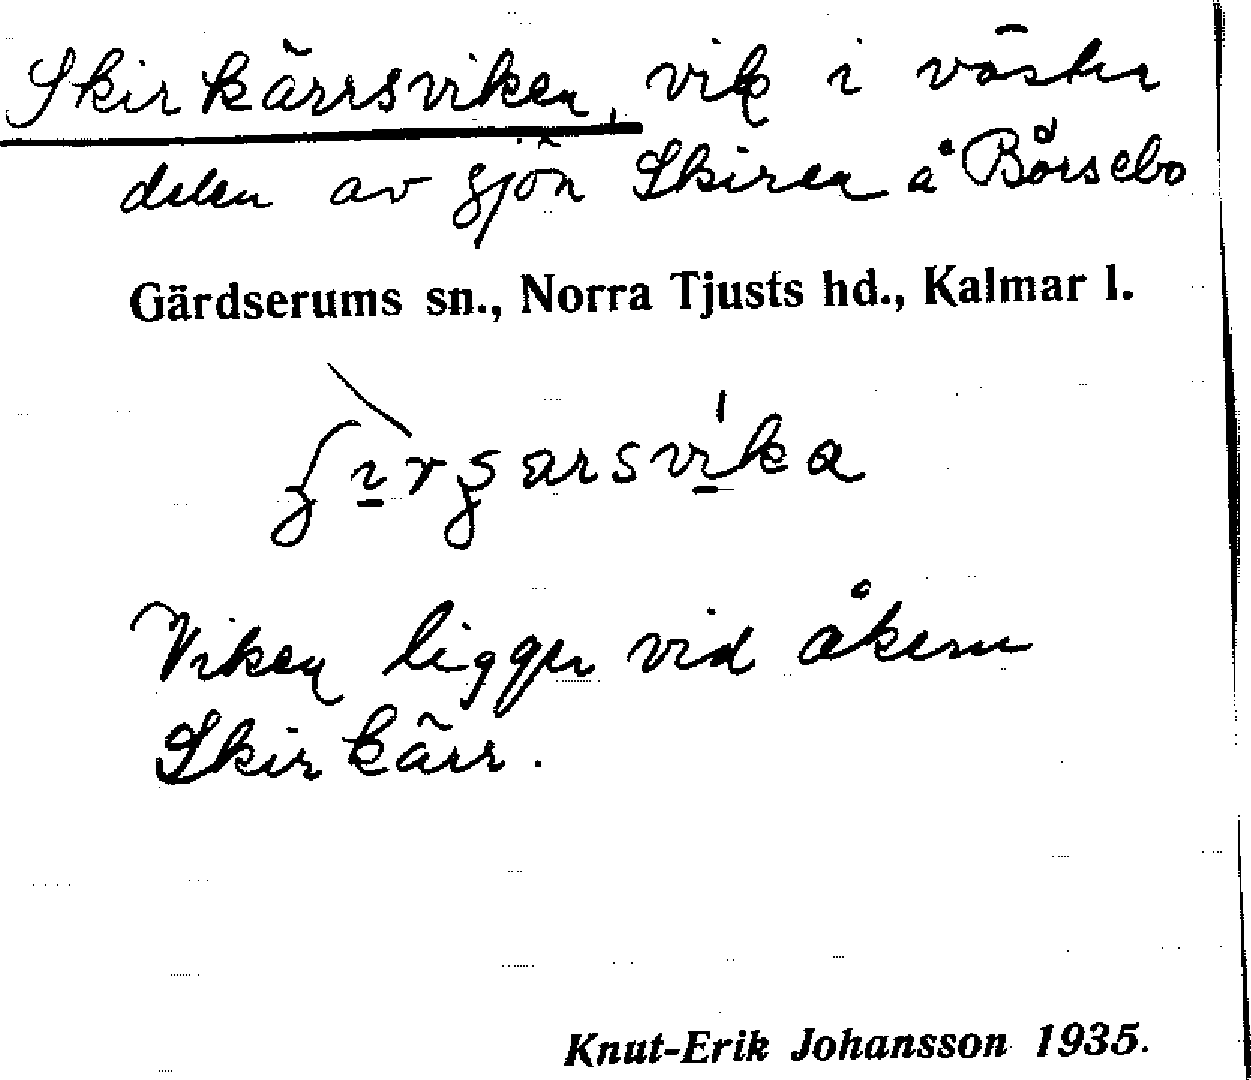 Skirkärrsviken, vik i västra
delen av sjön Skiren å Börsebo
Gärdserums sn., Norra Tjusts hd., Kalmar l.
Viken ligger vid åkern
Skirkärr.
Knut-Erik Johansson 1935.